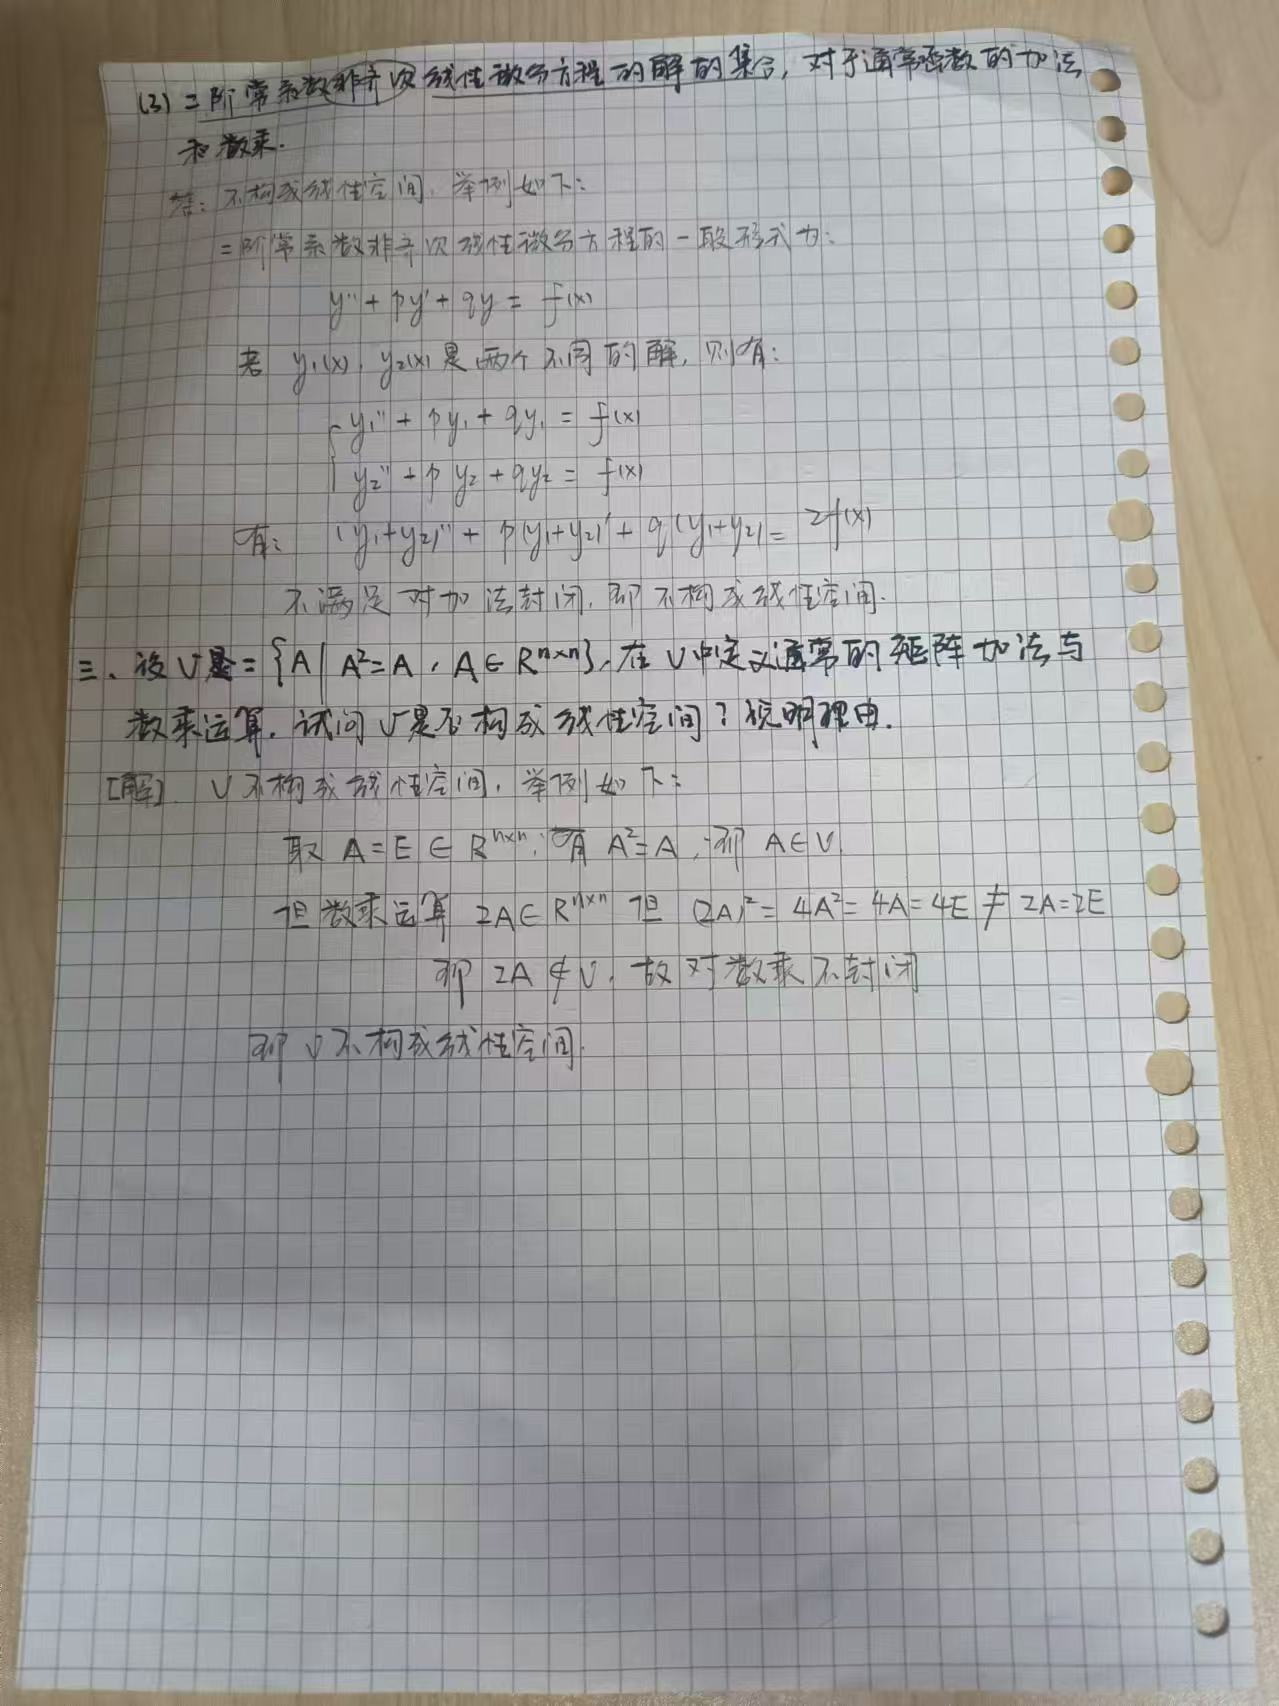 (3) 二阶常系数非齐次线性微分方程的解的集合, 对于通常函数的加法
和数乘.
答: 不构成线性空间, 举例如下:
二阶常系数非齐次线性微分方程的一般形式为:
y'' + py' + qy = f(x)
若 y₁(x), y₂(x) 是两个不同的解, 则有:
y₁'' + py₁ + qy₁ = f(x)
y₂'' + py₂ + qy₂ = f(x)
有: (y₁+y₂)'' + p(y₁+y₂)' + q(y₁+y₂) = 2f(x)
不满足对加法封闭, 即不构成线性空间.
三. 设V是={A| A²=A, A∈Rⁿˣⁿ}, 在V中定义通常的矩阵加法与
数乘运算, 试问V是否构成线性空间? 说明理由.
[解]. V不构成线性空间, 举例如下:
取 A=E∈Rⁿˣⁿ, 有 A²=A, 即 A∈V.
但数乘运算 2A∈Rⁿˣⁿ 但 (2A)²=4A²=4A=4E≠2A=2E
即 2A∉V, 故对数乘不封闭
即V不构成线性空间.